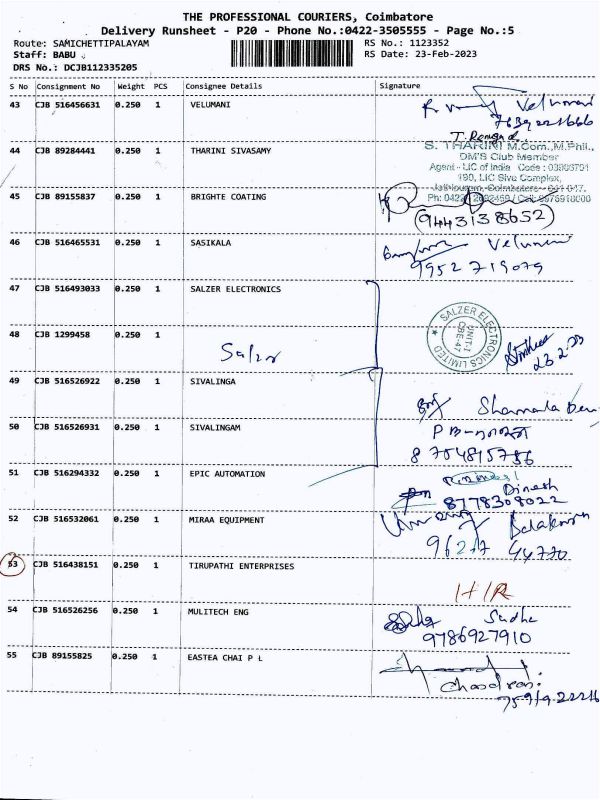 THE PROFESSIONAL COURIERS, Coimbatore
Delivery Runsheet - P20 - Phone No.:0422-3505555 - Page No.:5
Route: SAMICHETTIPALAYAM RS No.: 1123352
Staff: BABU RS Date: 23-Feb-2023
DRS No.: DCJB112335205
S No Consignment No Weight PCS Consignee Details Signature
43 CJB 516456631 0.250 1 VELUMANI Velumani
44 CJB 89284441 0.250 1 THARINI SIVASAMY
S. THARINI M.Com.,M.Phil.,
DM'S Club Member
Agent - LIC of India Code :
190, LIC Siva Complex,
45 CJB 89155837 0.250 1 BRIGHTE COATING
(9443138652)
46 CJB 516465531 0.250 1 SASIKALA Velumani
9952719079
47 CJB 516493033 0.250 1 SALZER ELECTRONICS
SALZER ELECTRONICS LIMITED
UNIT-I
CBE-47
48 CJB 1299458 0.250 1
Salzer
23.2.23
49 CJB 516526922 0.250 1 SIVALINGA
Sharmila Devi
50 CJB 516526931 0.250 1 SIVALINGAM
8754815786
51 CJB 516294332 0.250 1 EPIC AUTOMATION
Dinesh
8778308022
52 CJB 516532061 0.250 1 MIRAA EQUIPMENT
96277 44770
53 CJB 516438151 0.250 1 TIRUPATHI ENTERPRISES
54 CJB 516526256 0.250 1 MULITECH ENG Sudha
9786927910
55 CJB 89155825 0.250 1 EASTEA CHAI P L